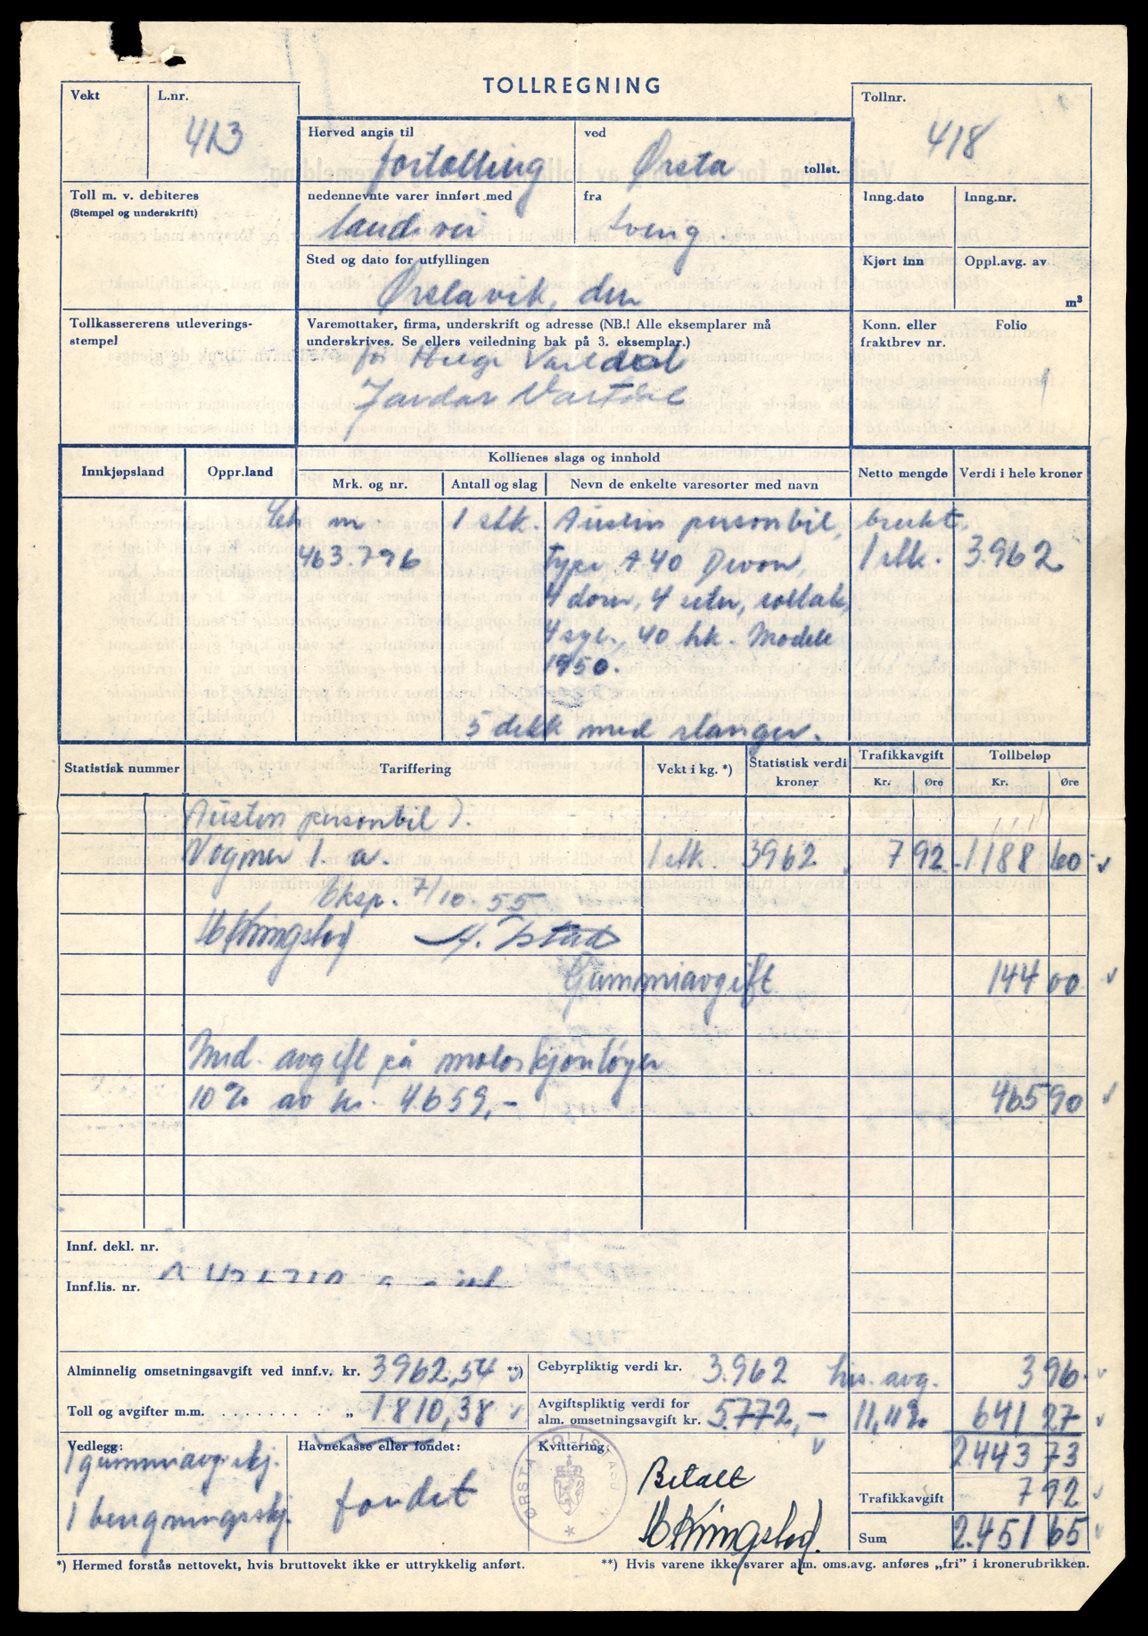 TOLLREGNING
Vekt
L.nr.
413
Tollnr.
418
Herved angis til
fortolling
ved
Ørsta
tollst.
Toll m. v. debiteres
(Stempel og underskrift)
nedennevnte varer innført med
landevei
fra
Inng.dato
Inng.nr.
Sted og dato for utfyllingen
Ørstavik, den
Kjørt inn
Oppl.avg. av
m³
Tollkassererens utleverings-
stempel
Varemottaker, firma, underskrift og adresse (NB.! Alle eksemplarer må
underskrives. Se ellers veiledning bak på 3. eksemplar.)
for Helge Vartdal
Jardar Vartdal
Konn. eller
fraktbrev nr.
Folio
Innkjøpsland
Oppr.land
Kollienes slags og innhold
Mrk. og nr.
Antall og slag
Nevn de enkelte varesorter med navn
Netto mengde
Verdi i hele kroner
Ch nr
1 stk.
Austin personbil, brukt.
463.796
type A 40 Devon,
1 stk.
3.962
4 dørs, 4 seter, sollak,
4 syl., 40 hk. Modell
1950.
5 dekk med slanger.
Statistisk nummer
Tariffering
Vekt i kg. *)
Statistisk verdi
kroner
Trafikkavgift
Kr.
Øre
Tollbeløp
Kr.
Øre
Austin personbil ).
Vogner 1. a.
1 stk.
3962
7 92
1188 60
Eksp. 7/10-55
M Kringstad
Gummiavgift
144 00
Mid. avgift på motorkjøretøyer
10% av kr. 4659,-
465 90
Innf. dekl. nr.
Innf.lis. nr.
Alminnelig omsetningsavgift ved innf.v. kr. 3962,54 **)
Gebyrpliktig verdi kr. 3.962
his. avg.
3 96
Toll og avgifter m.m. . . . . . . . . „ 1810,38
Avgiftspliktig verdi for
alm. omsetningsavgift kr. 5772,-
11,11%
641 27
Vedlegg:
1 gummiavg.skj.
1 bergningsskj.
Havnekasse eller fondet:
fondet
Kvittering:
Betalt
M Kringstad.
ØRSTA TOLLSTASJON
2.443 73
Trafikkavgift
7 92
Sum
2.451 65
*) Hermed forstås nettovekt, hvis bruttovekt ikke er uttrykkelig anført.
**) Hvis varene ikke svarer alm. oms.avg. anføres „fri” i kronerubrikken.